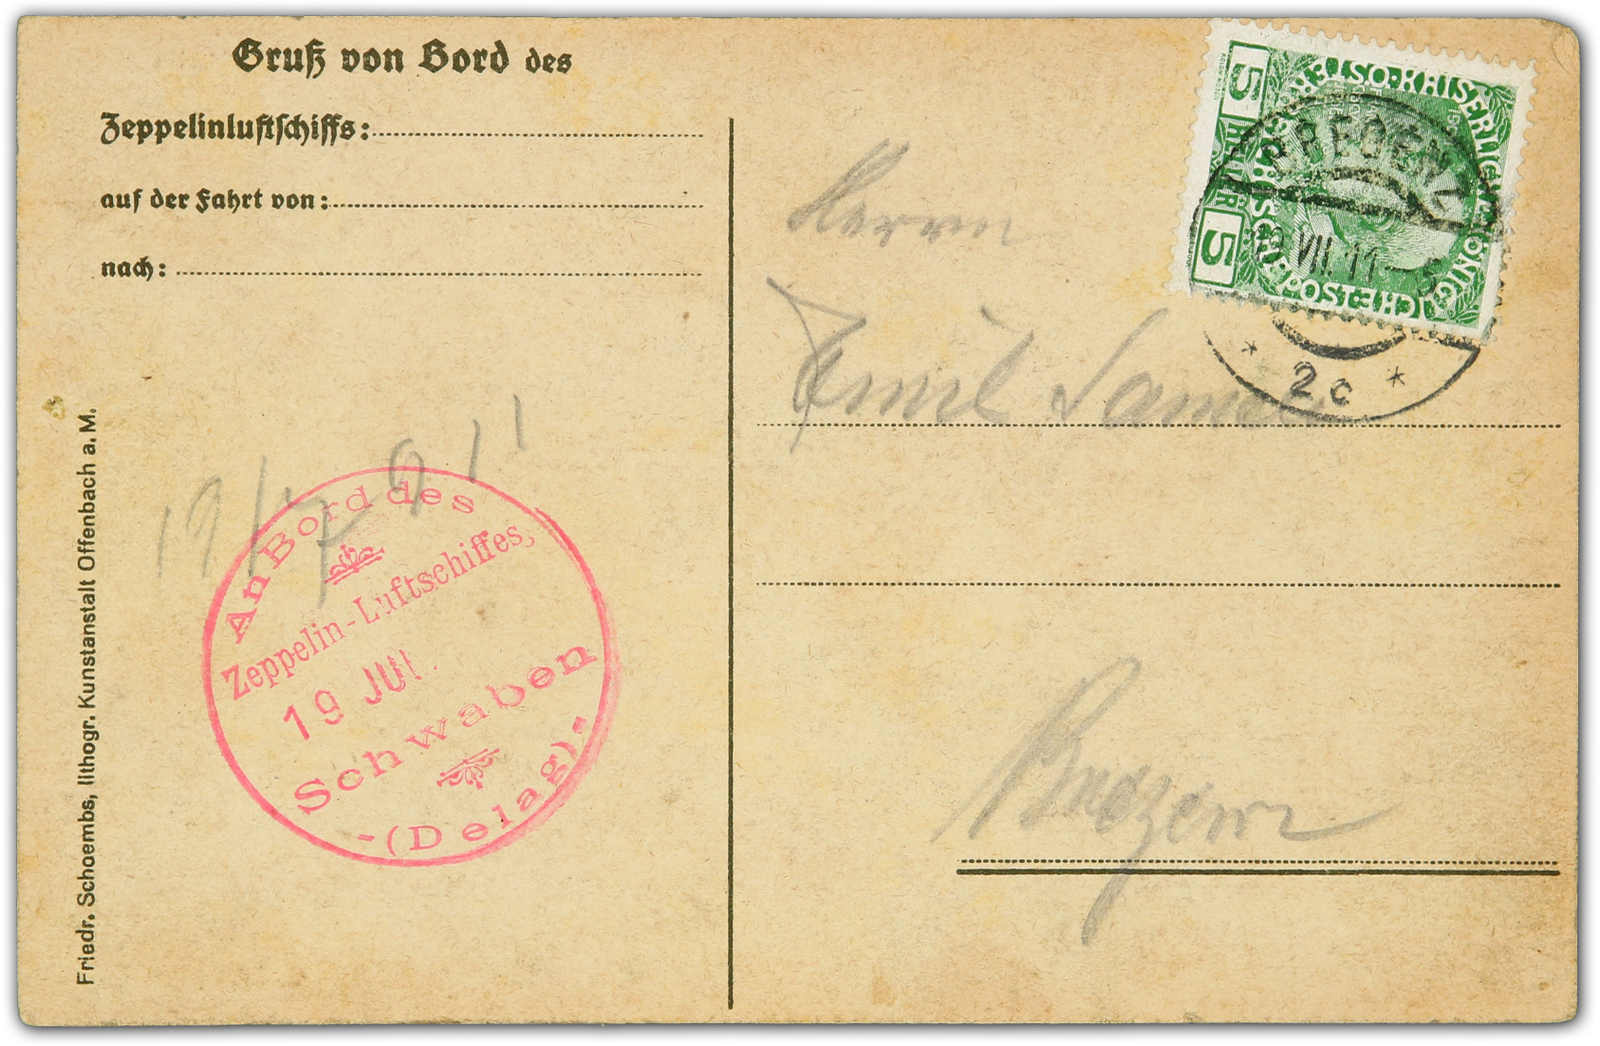 Gruß von Bord des
Zeppelinluftschiffs:
auf der Fahrt von:
nach:
Friedr. Schoembs, lithogr. Kunstanstalt Offenbach a. M.
19/7 911
An Bord des
Zeppelin-Luftschiffes,
19 JUL.
Schwaben
-(Delag)-
KAISERLICHE KÖNIGLICHE
ÖSTERREICHISCHE POST
5 HELLER 5
BREGENZ
19 VII. 11
* 2c *
Herrn
Emil